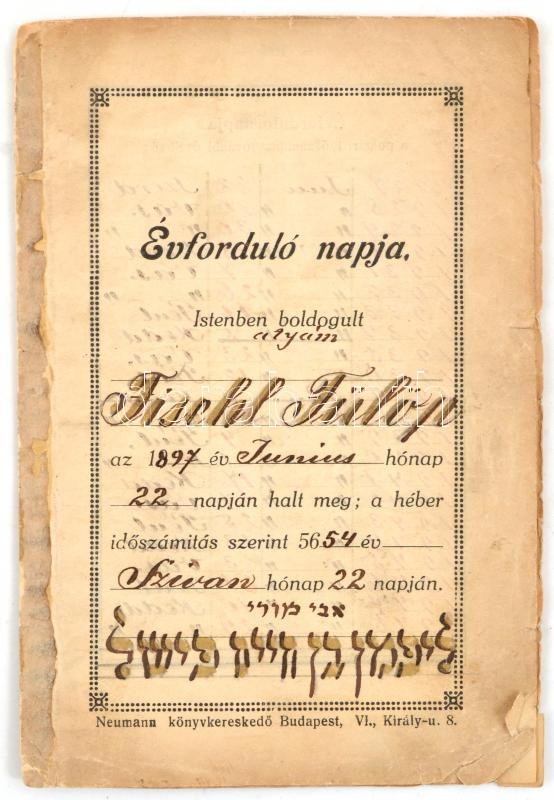 Évforduló napja.
Istenben boldogult
atyám
Fischl Fülöp
az 1897 év Junius hónap
22 napján halt meg; a héber
időszámitás szerint 5654 év
Sziwan hónap 22 napján.
אבי מורי
בן חיים פישל
Neumann könyvkereskedő Budapest, VI., Király-u. 8.